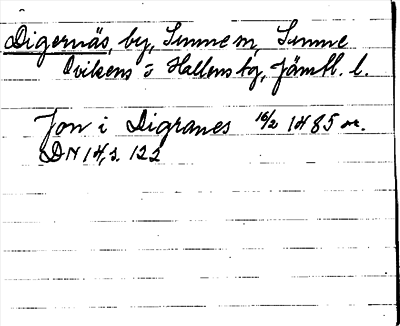 Digernäs, by, Sunne sn, Sunne
Ovikens o Hallens tg, Jämtl. l.
Jon i Digranes 16/2 1485 or.
DN 14, s. 122